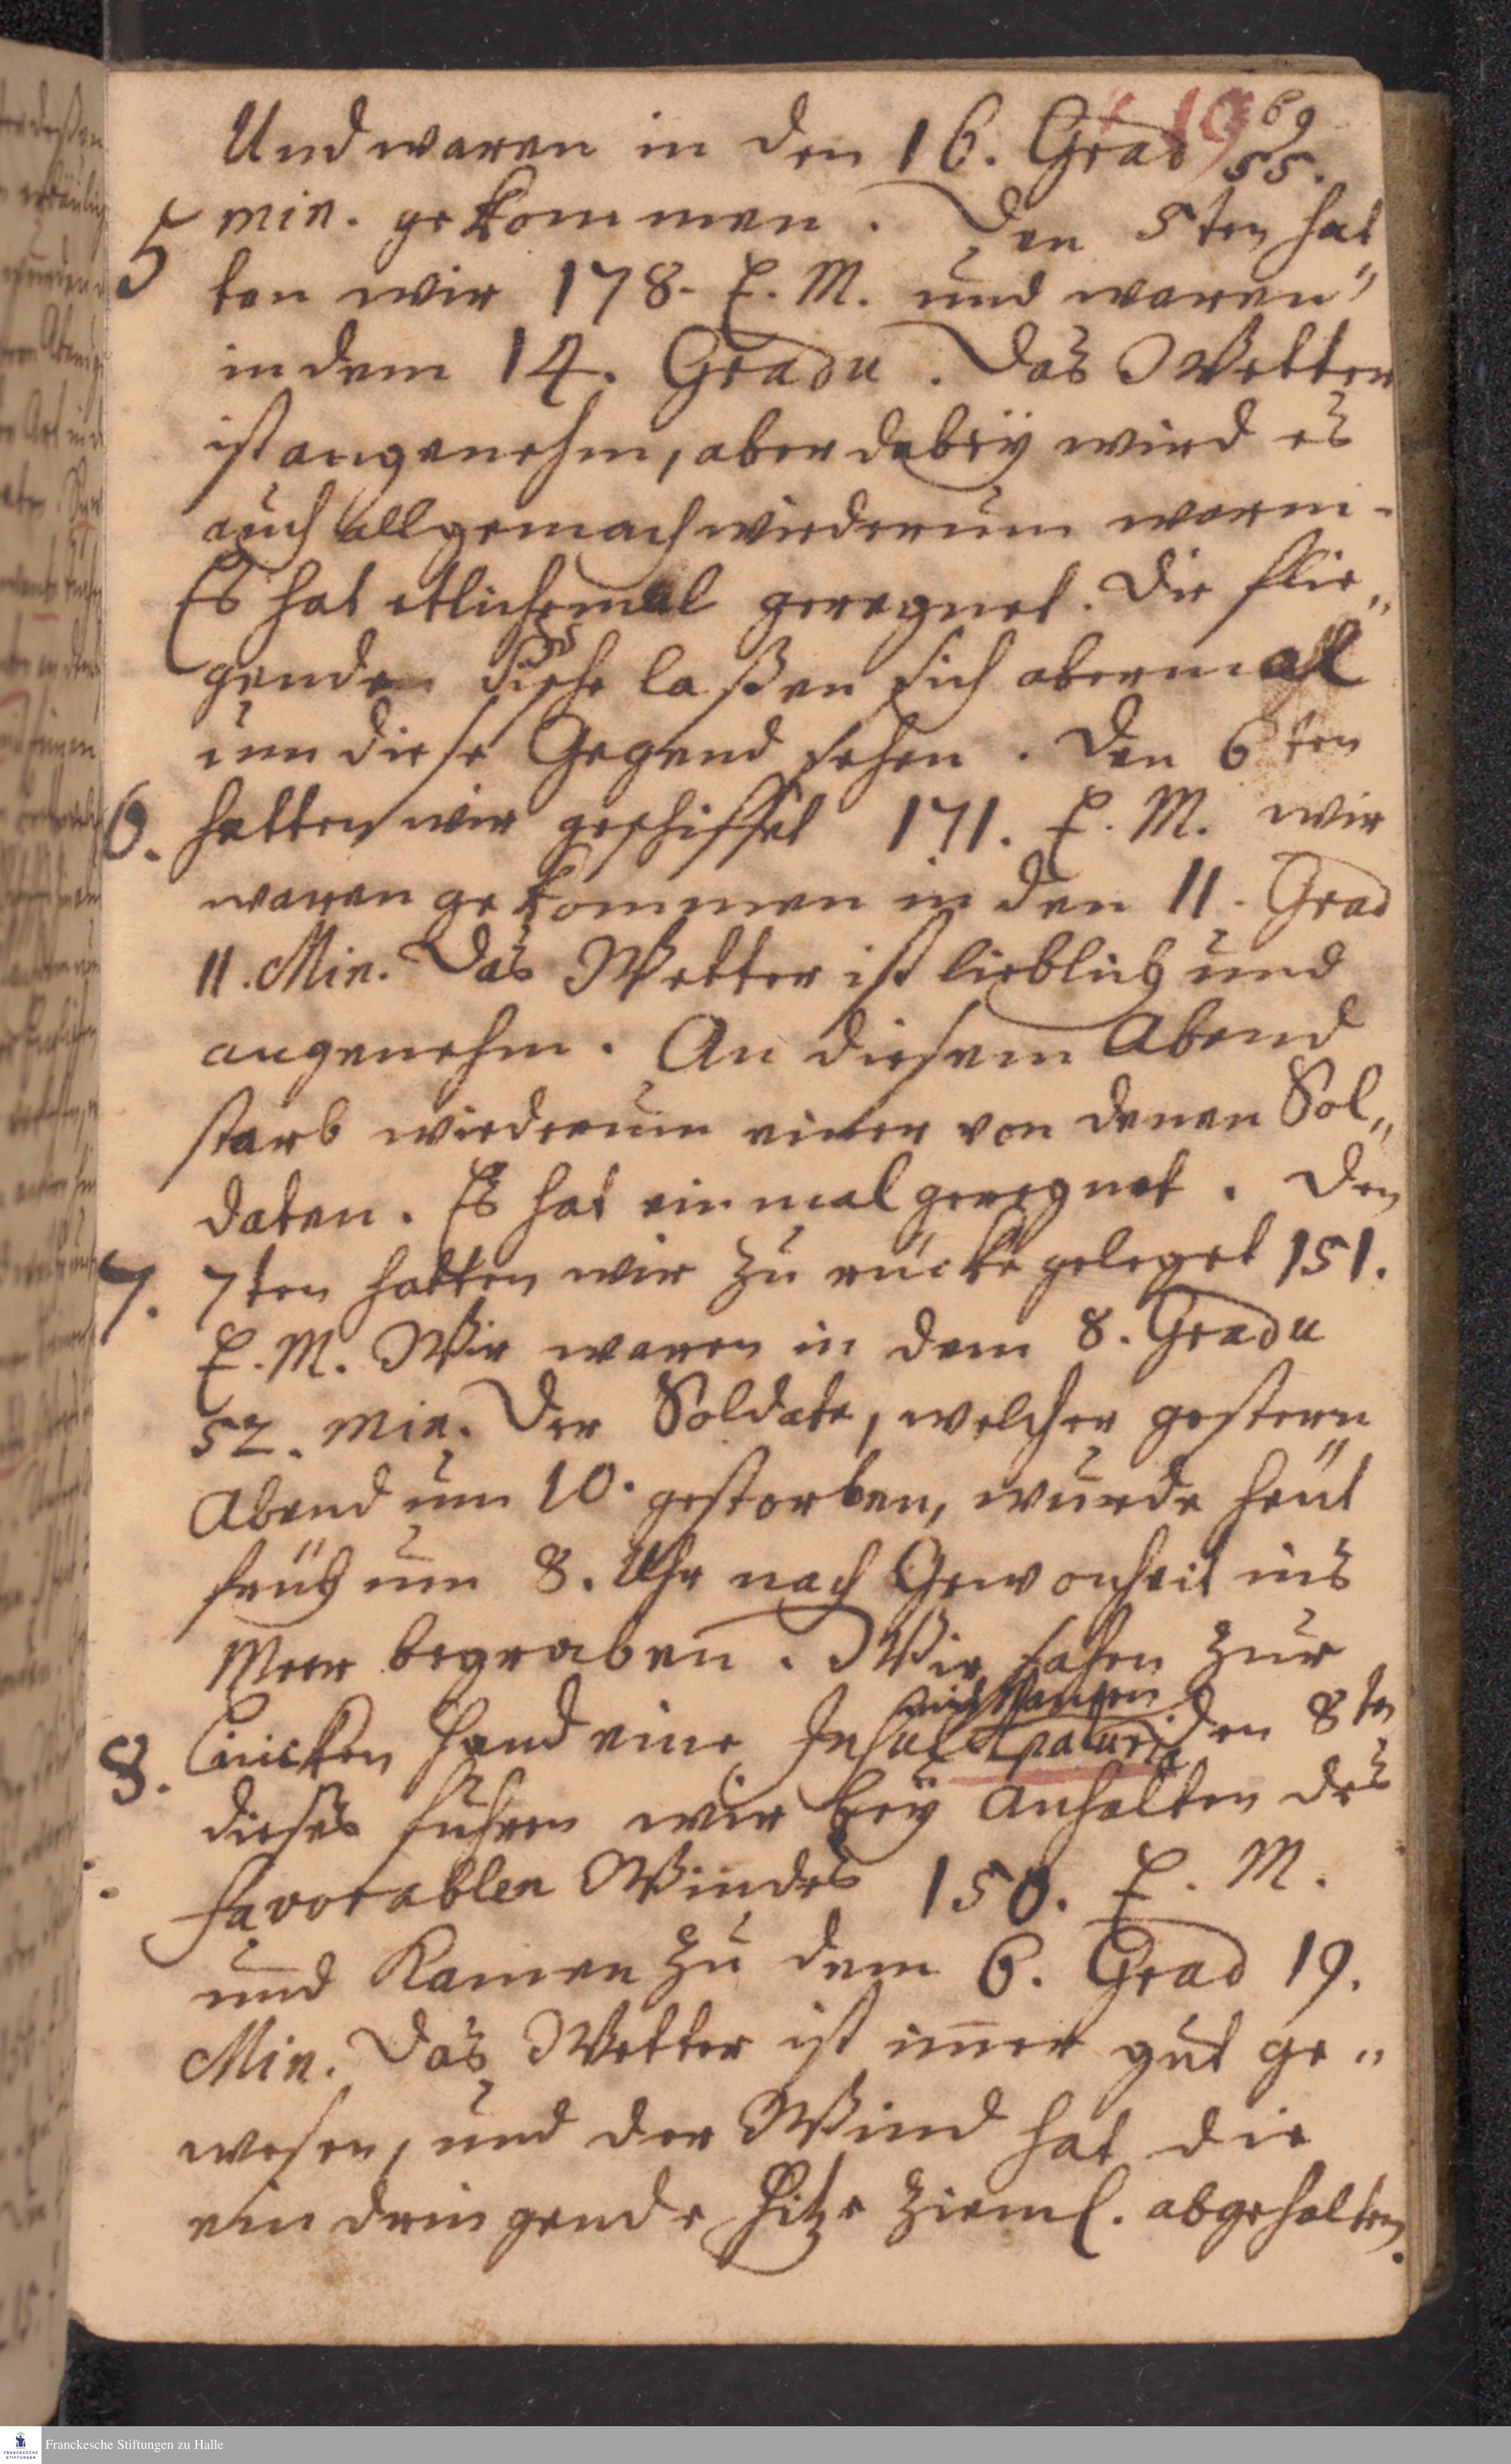 69
Und waren in den 16. Grad 55.
min. gekommen. Den 5ten hat
5
ten wir 178. E. M. und waren
in dem 14. Gradu. Das Wetter
ist angenehm, aber dabeÿ wird es
auch allgemach wiederum warm.
Es hat etlichemal geregnet. Die flie„
gende Fische laßen sich abermal
um diese Gegend sehen. Den 6ten
6. hatten wir geschiffet 171. E. M. wir
waren gekommen in den 11. Grad
11. Min. Das Wetter ist lieblich und
angenehm. An diesem Abend
starb wiederum einer von denen Sol„
daten. Es hat einmal geregnet. Den
7. 7ten hatten wir zu rücke geleget 151.
E. M. Wir waren in dem 8. Gradu
52. Min. Der Soldate, welcher gestern
Abend um 10. gestorben, wurde heut
früh um 8. Uhr nach Gewonheit ins
Meer begraben. Wir sahen zur
Lincken Hand eine Insul den 8ten
8. dieses fuhren wir beÿ Anhalten des
favorablen Windes 150. E. M.
und Kamen zu dem 6. Grad 19.
Min. Das Wetter ist im̄er gut ge„
wesen, und der Wind hat die
eindringende Hitze zieml. abgehalten.
Franckesche Stiftungen zu Halle